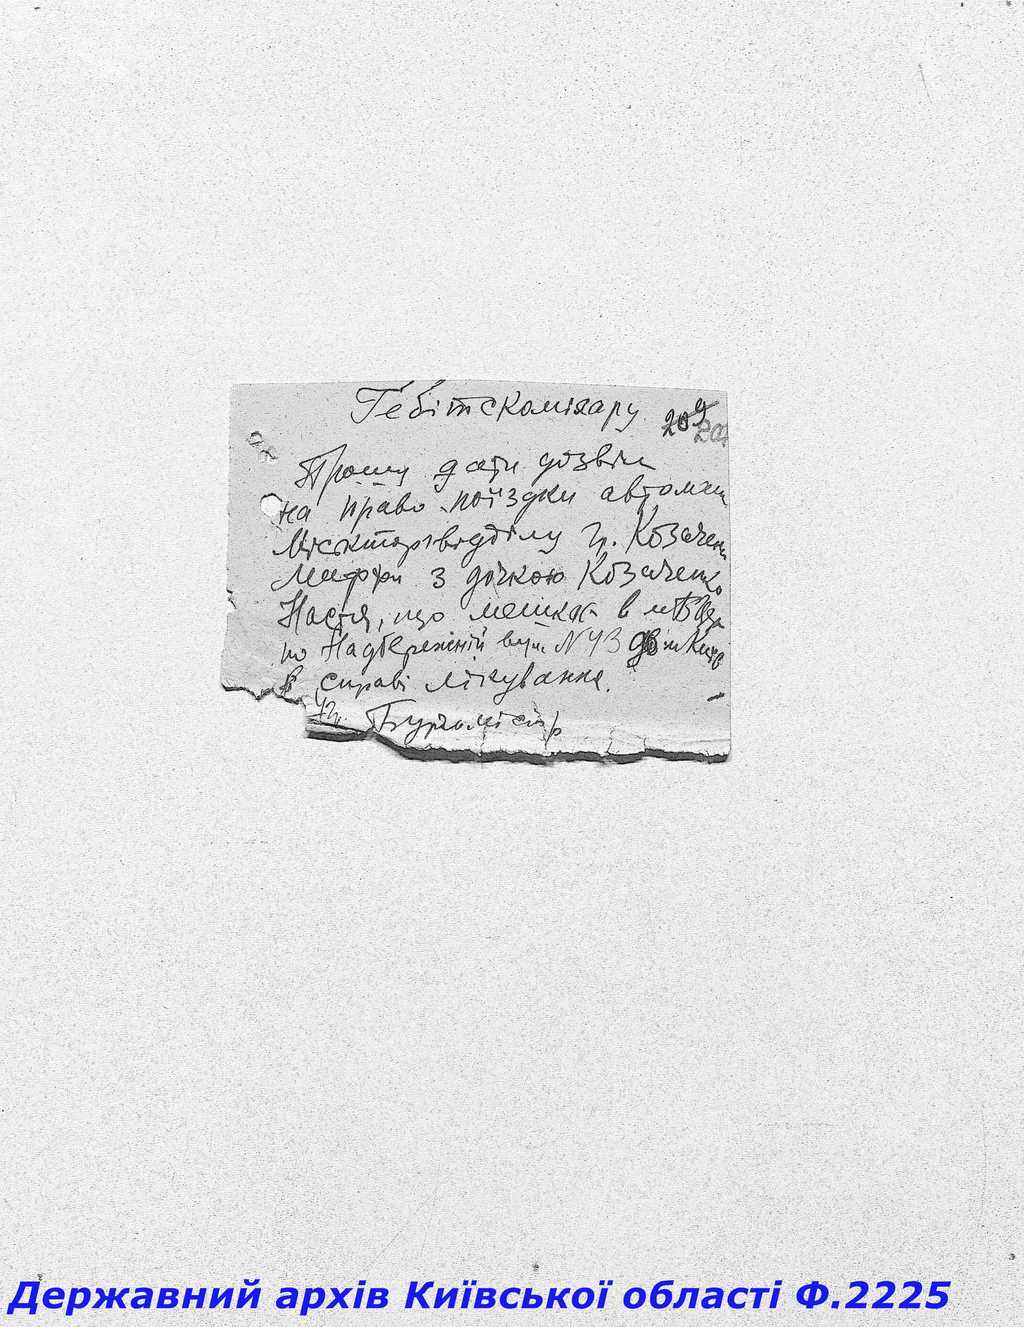 Гебітскомісару
209
Прошу дати дозвіл
на право поїздки автомаш
Міськторгвідділу гр. Козаченк
Марфи з дочкою Козаченко
Настя, що мешкає в м Б
по Надбережній вул. N 43 до м Київ
в справі лікування.
Бургомістр
Державний архів Київської області Ф.2225